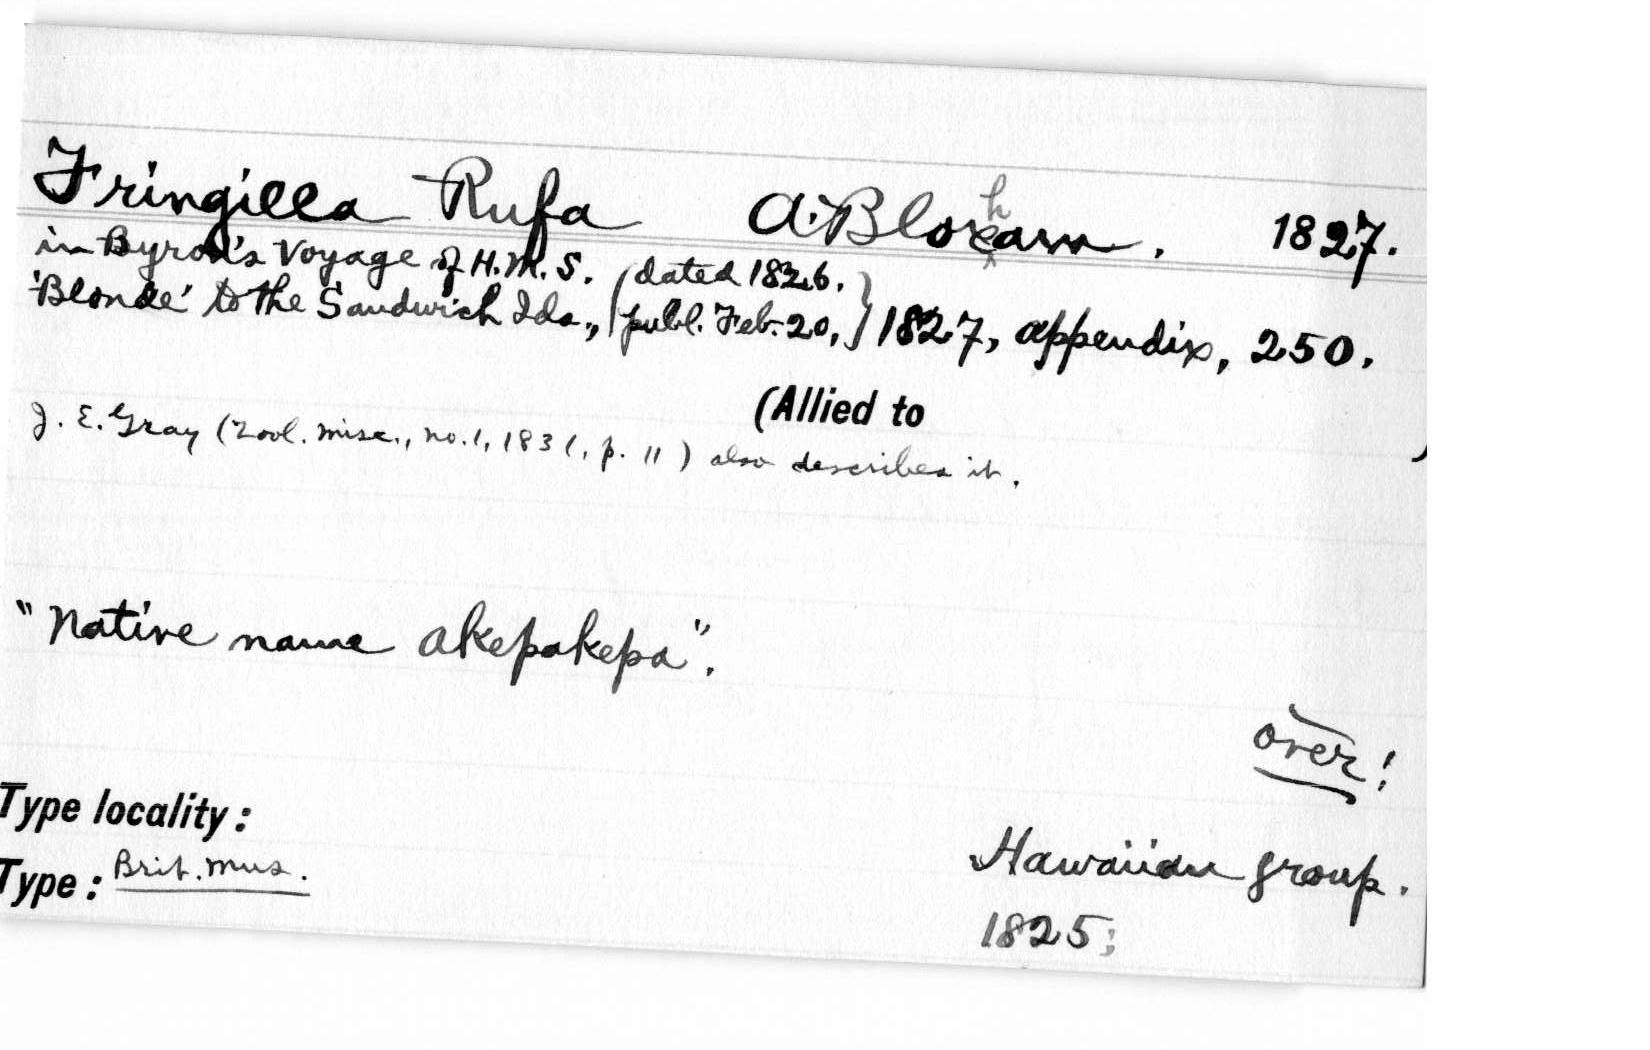 Fringilla Rufa A. Bloxham. 1827.
in Byron's Voyage of H.M.S. (dated 1826.)
'Blonde' to the Sandwich Ids., (publ. Feb. 20,) 1827, appendix, 250.
(Allied to )
J. E. Gray (Zool. misc., no. 1, 1831, p. 11) also describes it.
"Native name akepakepa".
over!
Type locality: Hawaiian group.
Type: Brit. Mus. 1825;